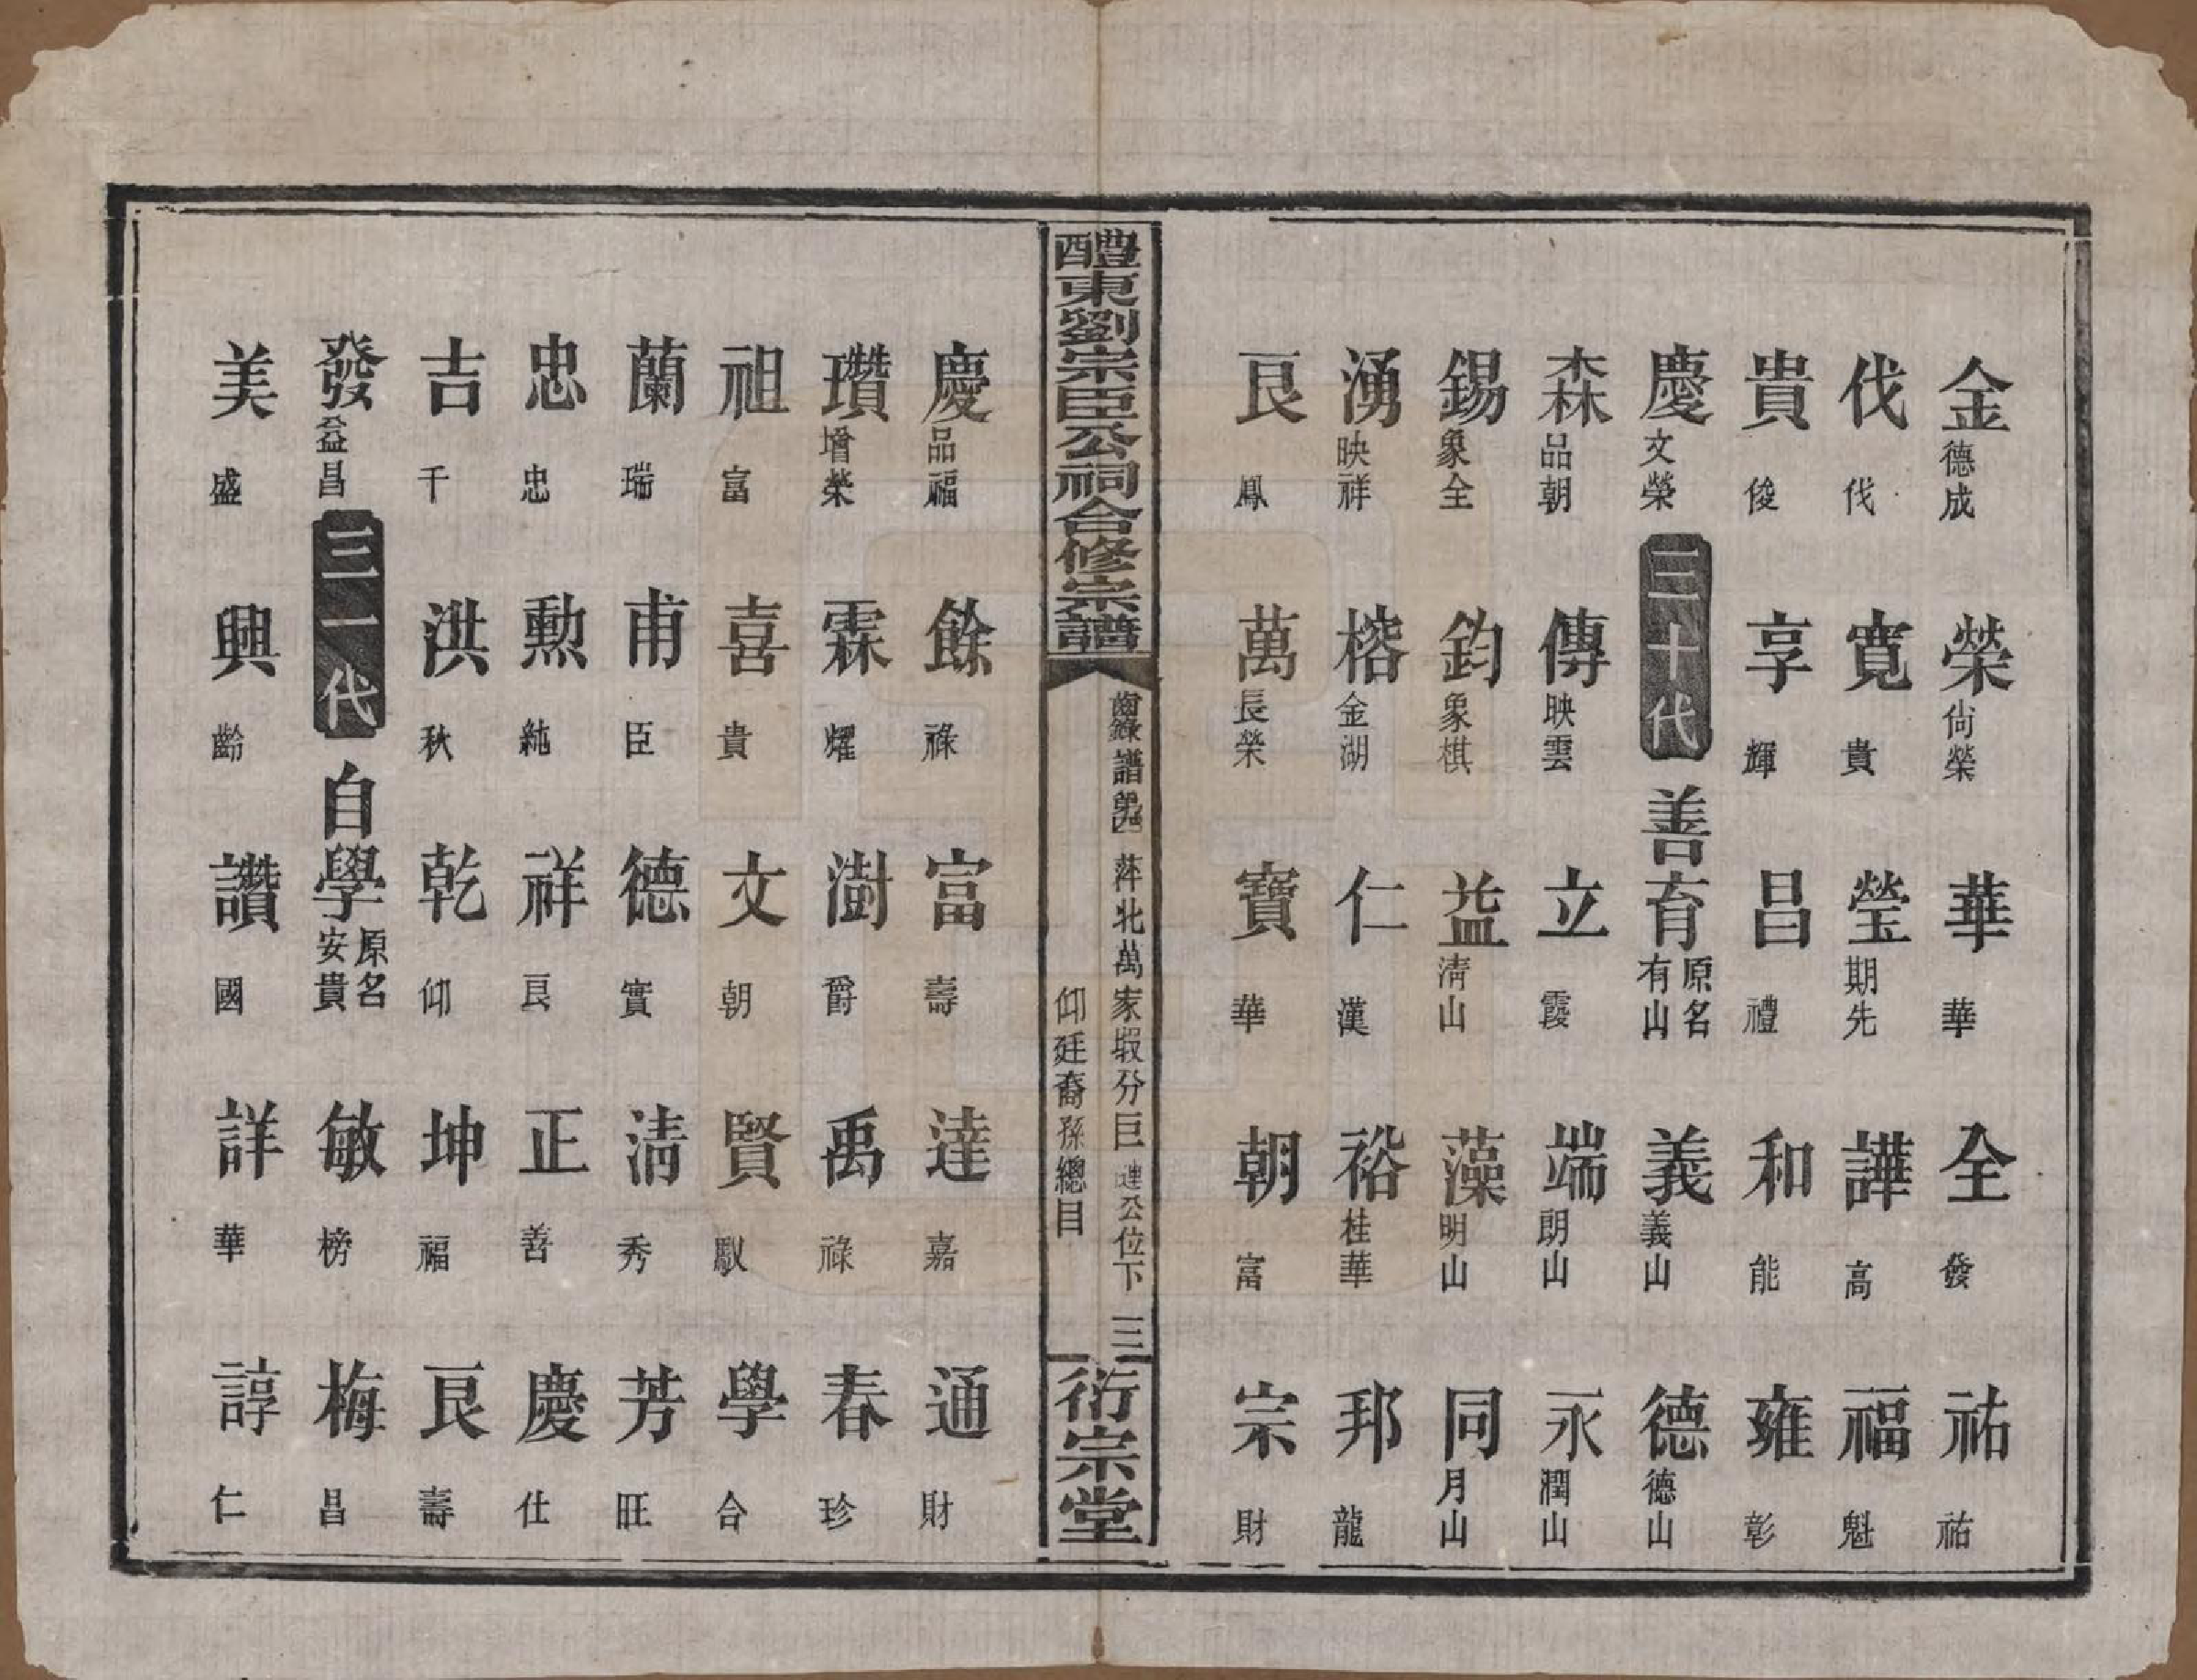 金德成　榮尙榮　華華　全發　祐祐
伐伐　寬貴　瑩期先　譁高　福魁
貴俊　享輝　昌禮　和能　雍彰
慶文榮　三十代　善育原名有山　義義山　德德山
森品朝　傳映雲　立霞　端朗山　永潤山
錫象全　鈞象棋　益淸山　藻明山　同月山
湧映祥　榕金湖　仁漢　裕桂華　邦龍
艮鳳　萬長榮　寶華　朝富　宗財
醴東劉宗臣公祠合修宗譜
齒錄譜　萍北萬家塅分巨璉公位下
仰廷裔孫總目
三
衍宗堂
慶品福　餘祿　富壽　達嘉　通財
瓚增榮　霖燿　澍爵　禹祿　春珍
祖富　喜貴　文朝　賢馭　學合
蘭瑞　甫臣　德實　淸秀　芳旺
忠忠　勲純　祥艮　正善　慶仕
吉千　洪秋　乾仰　坤福　艮壽
發益昌　三一代　自學原名安貴　敏榜　梅昌
美盛　興齡　讚國　詳華　諄仁